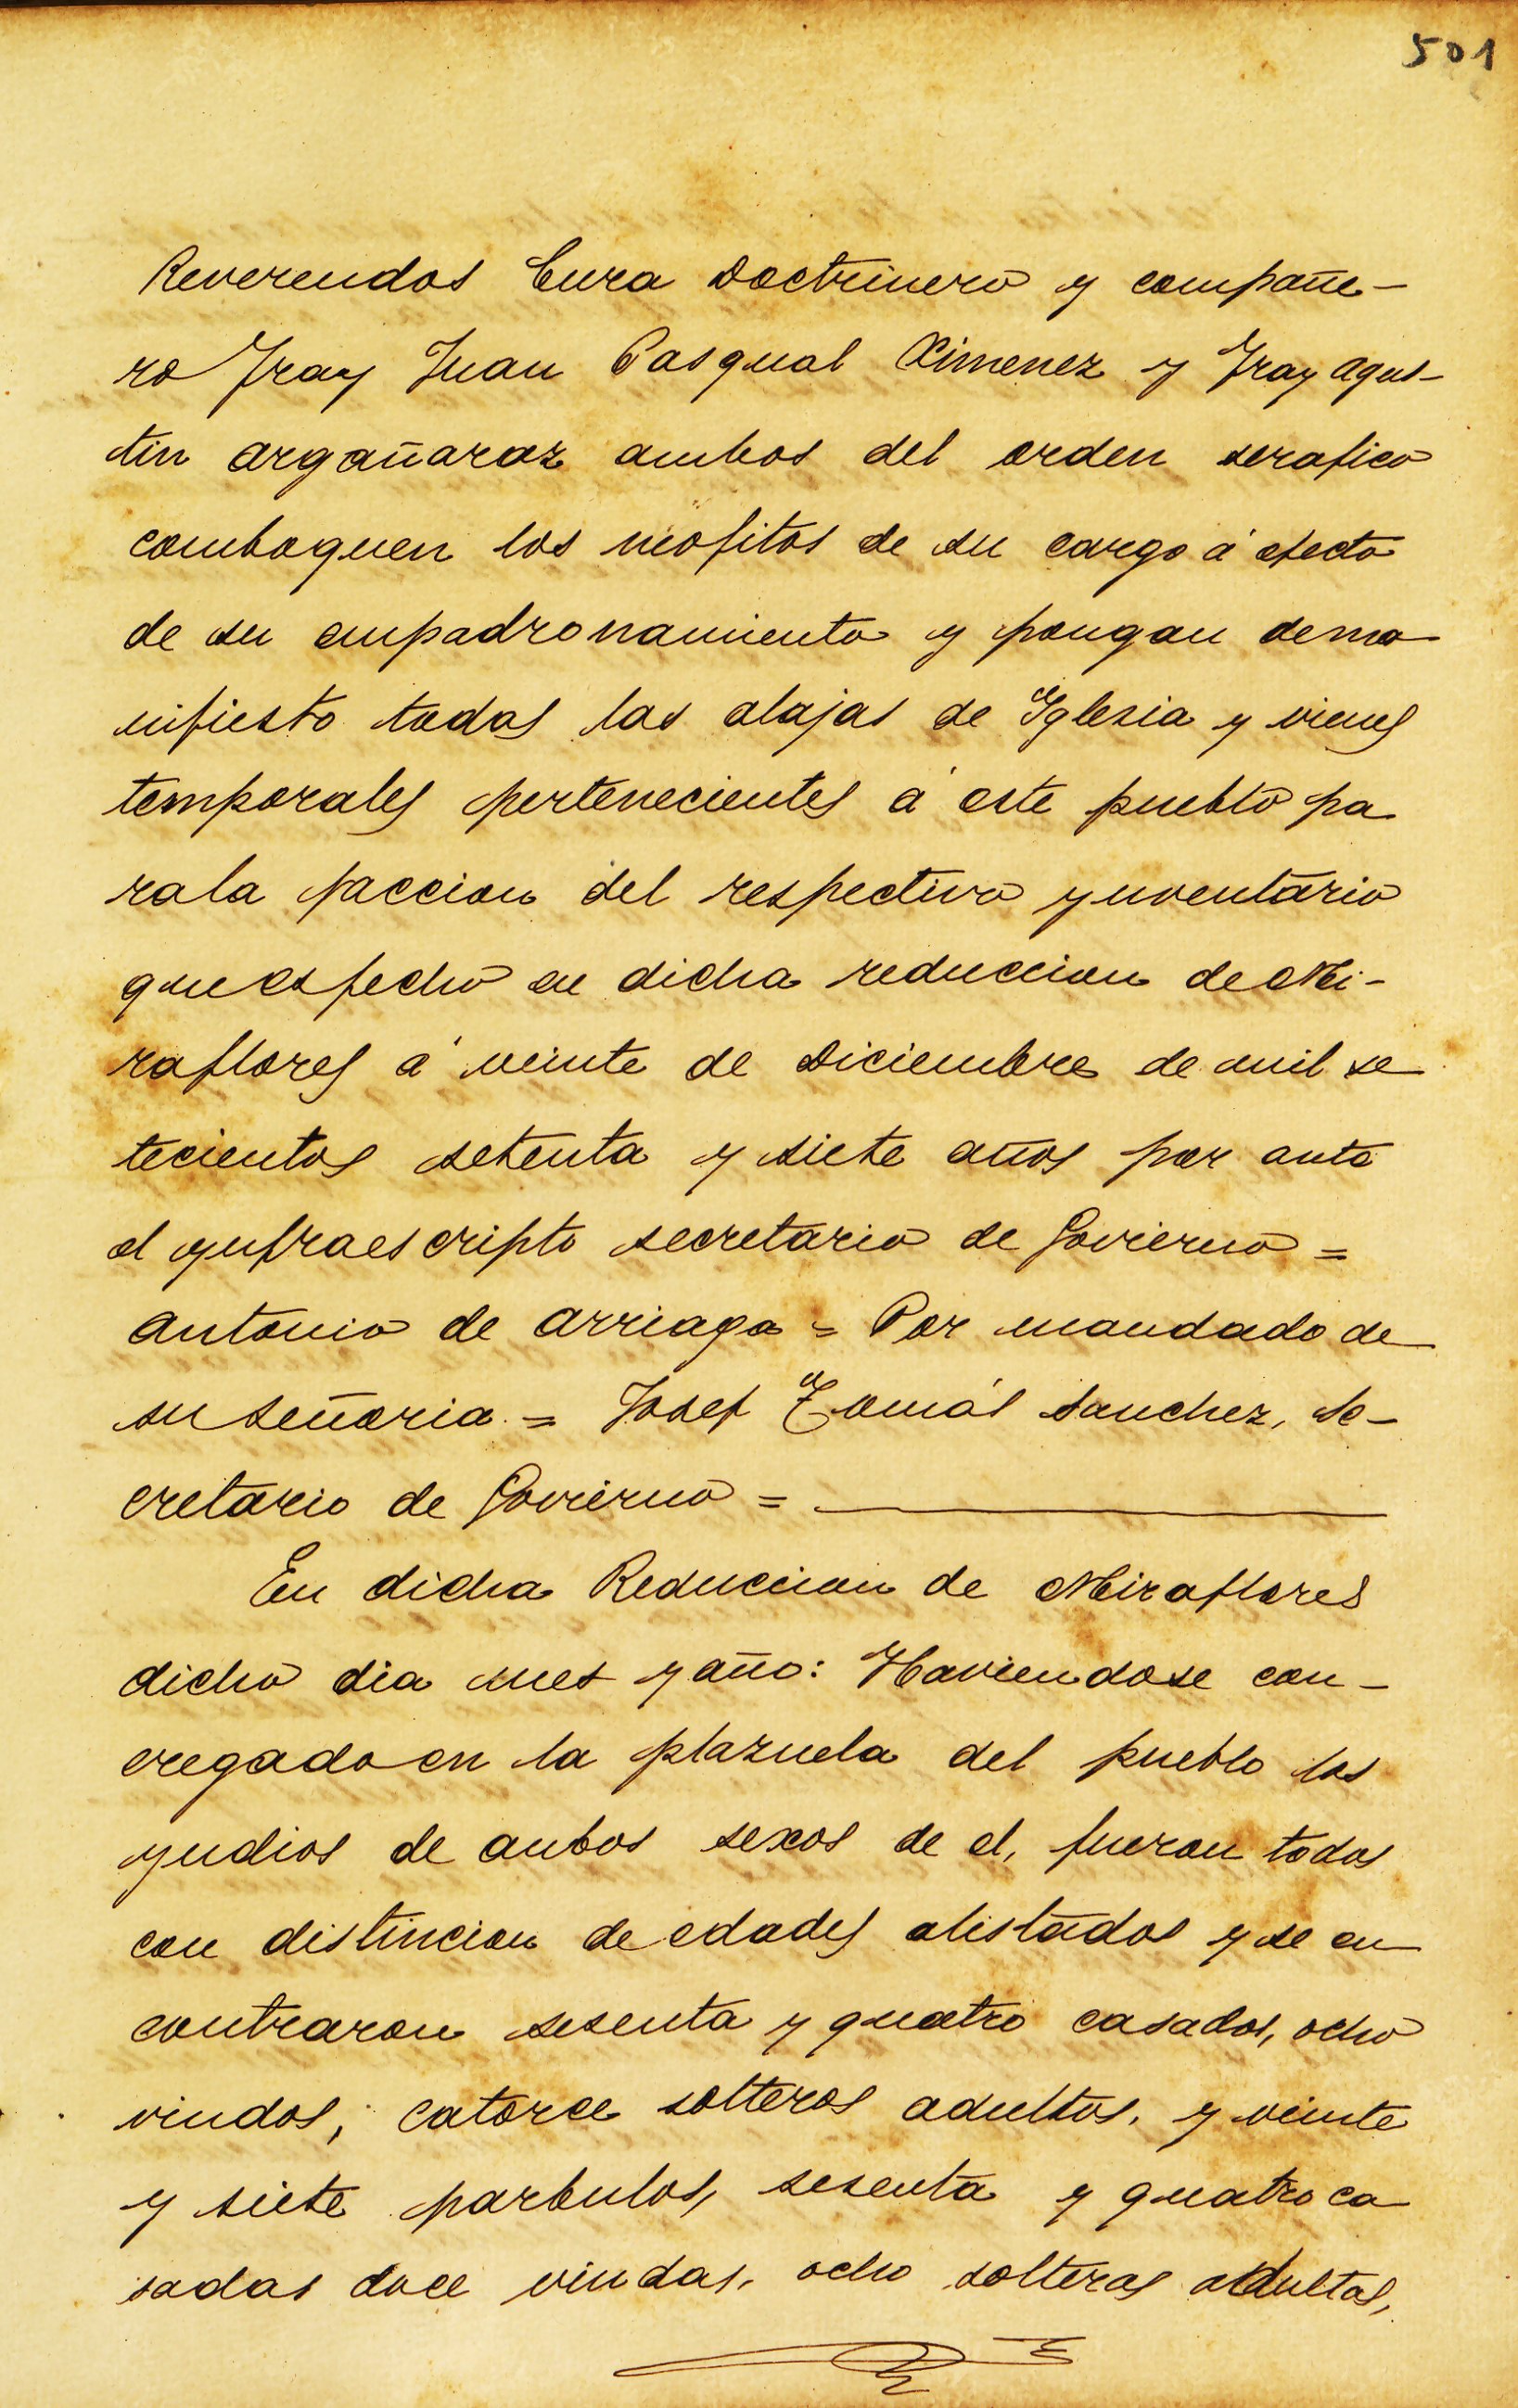 501
Reverendos Cura Doctrinero y compañe-
ro Fray Juan Pasqual Ximenez y Fray Agus-
tin Argañaraz ambos del orden serafico
comboquen los neofitos de su cargo á efecto
de su empadronamiento y pongan dema
nifiesto todas las alajas de Yglesia y vienes
temporales pertenecientes á este pueblo pa
rala faccion del respectivo ynventario
que es fecho en dicha reduccion de Mi-
raflores á veinte de Diciembre de mil se
tecientos setenta y siete años por ante
el ynfraescripto secretario de Govierno =
Antonio de Arriaga = Por mandado de
su señoria. = Josef Tomás Sanchez, Se-
cretario de Govierno =
En dicha Reduccion de Miraflores
dicho dia mes y año: Haviendose con-
cregado en la plazuela del pueblo los
yndios de anbos sexos de el, fueron todos
con distincion de edades alistados y se en
contraron sesenta y quatro casados, ocho
viudos, catorce solteros adultos, y veinte
y siete parbulos, sesenta y quatro ca
sadas doce viudas, ocho solteras adultas,